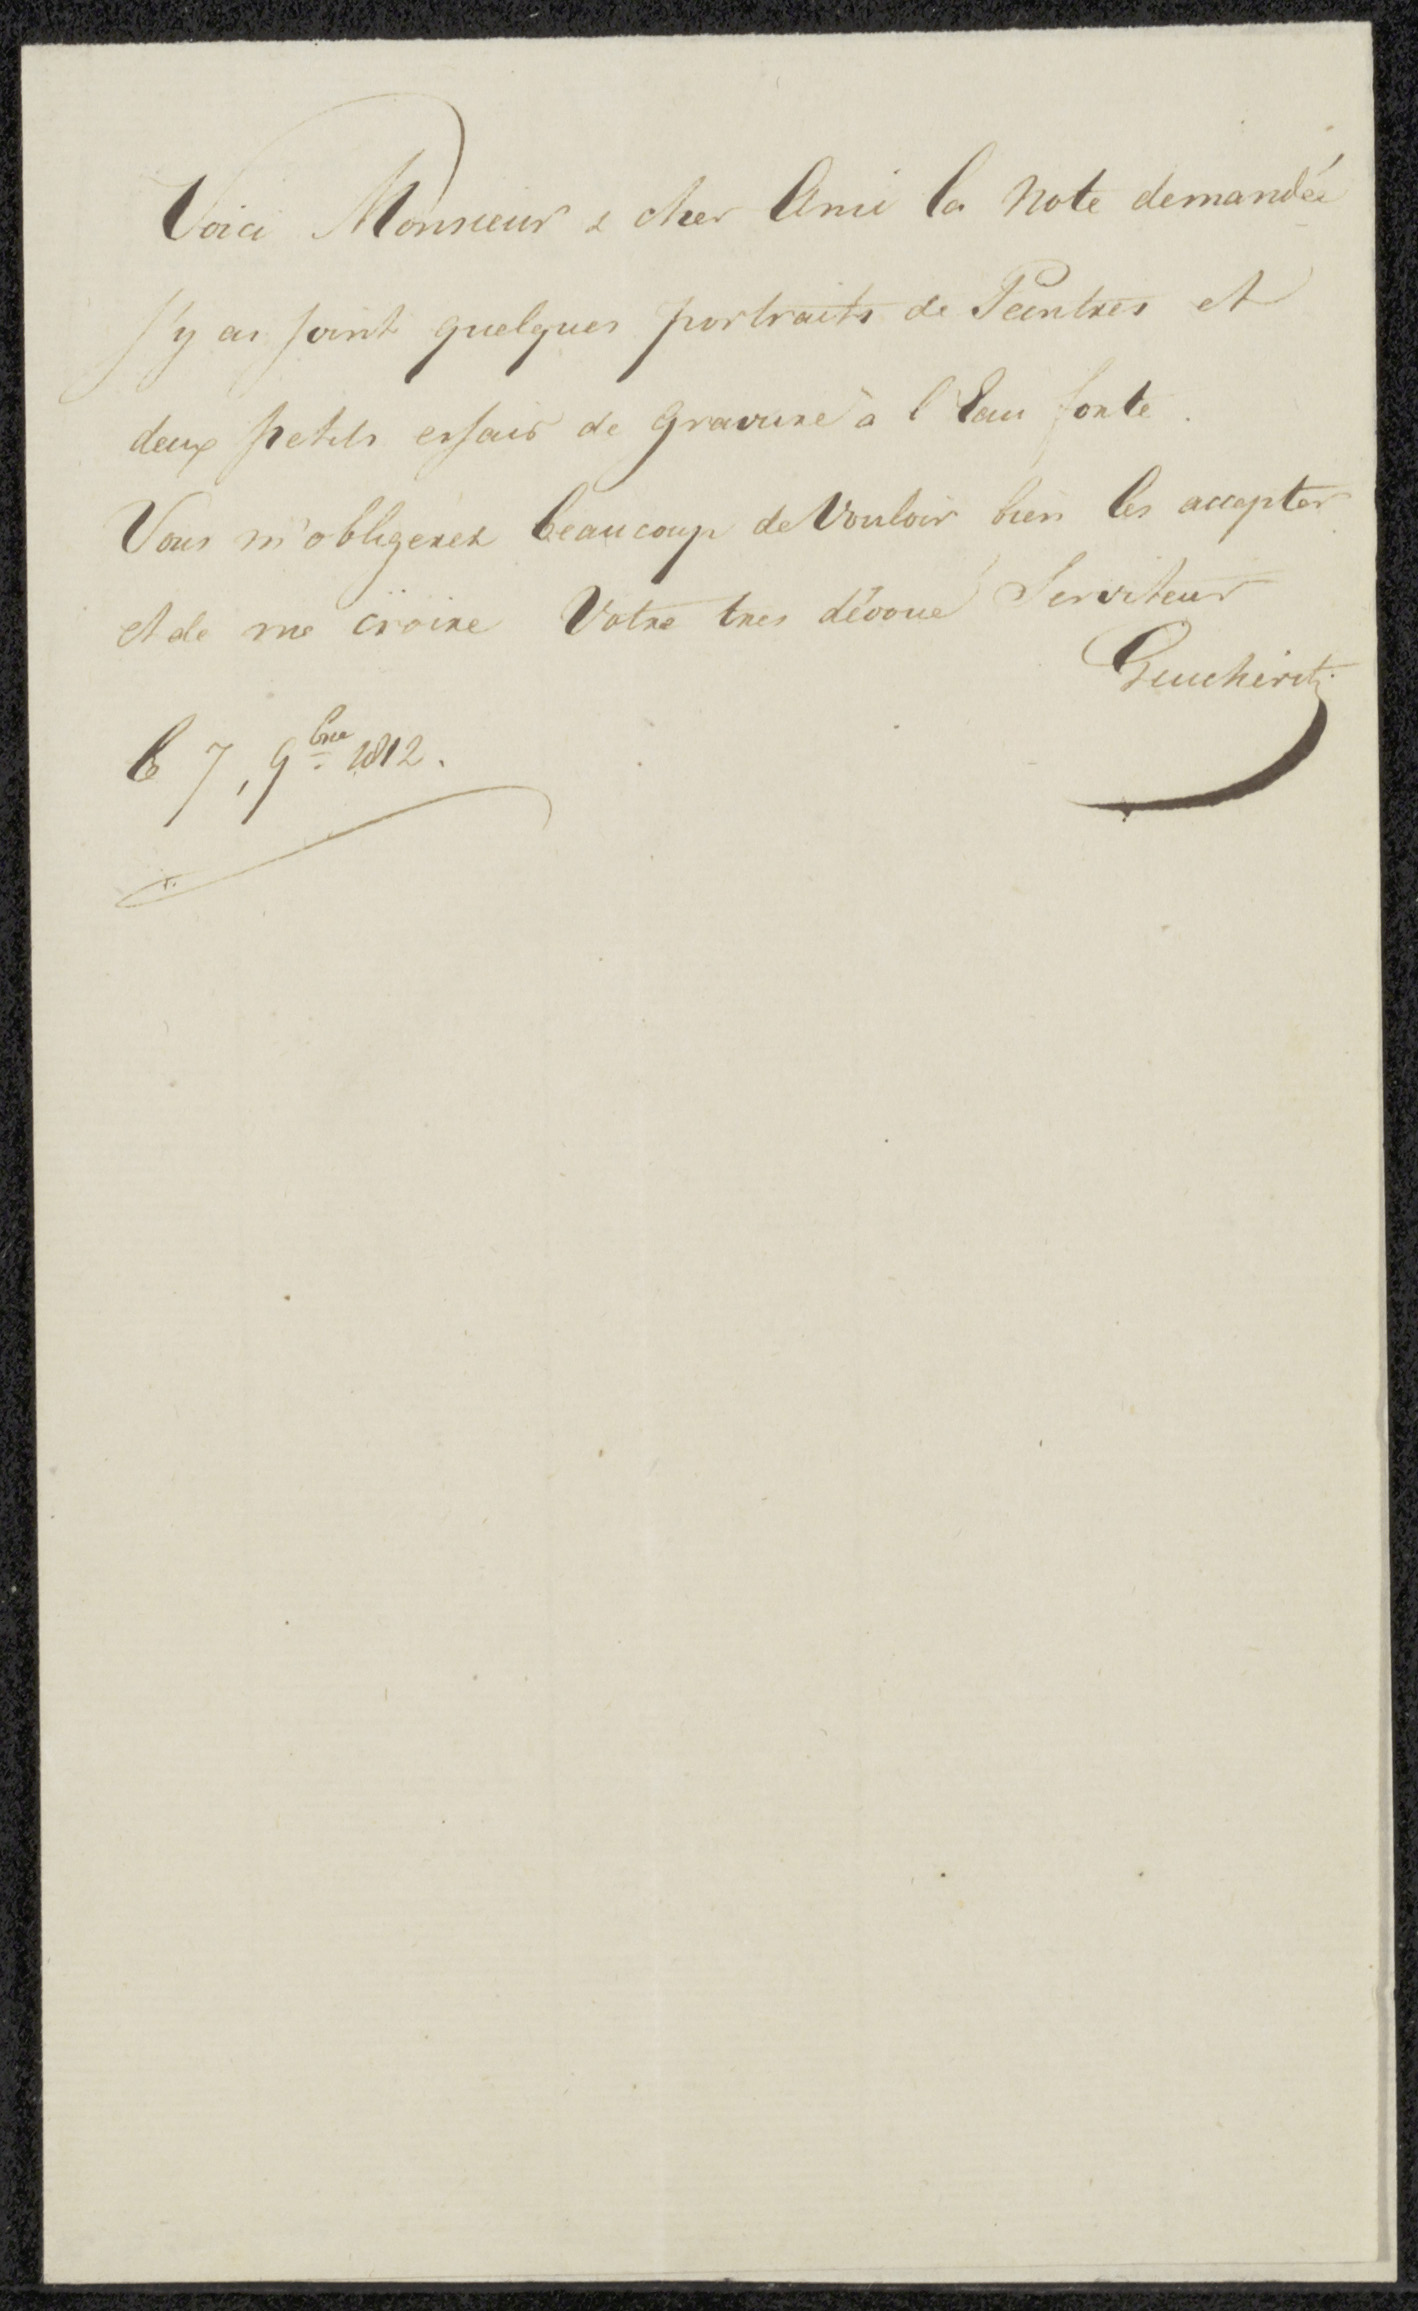 Voici Monsieur & cher Ami la Note demandée
j'y ai joint quelques portraits de Peintres et
deux petits essais de gravure à l'Eau forte.
Vous m'obligerez beaucoup de Vouloir bien les accepter
et de me croire Votre tres dévoué Serviteur
le 7, 9bre 1812.